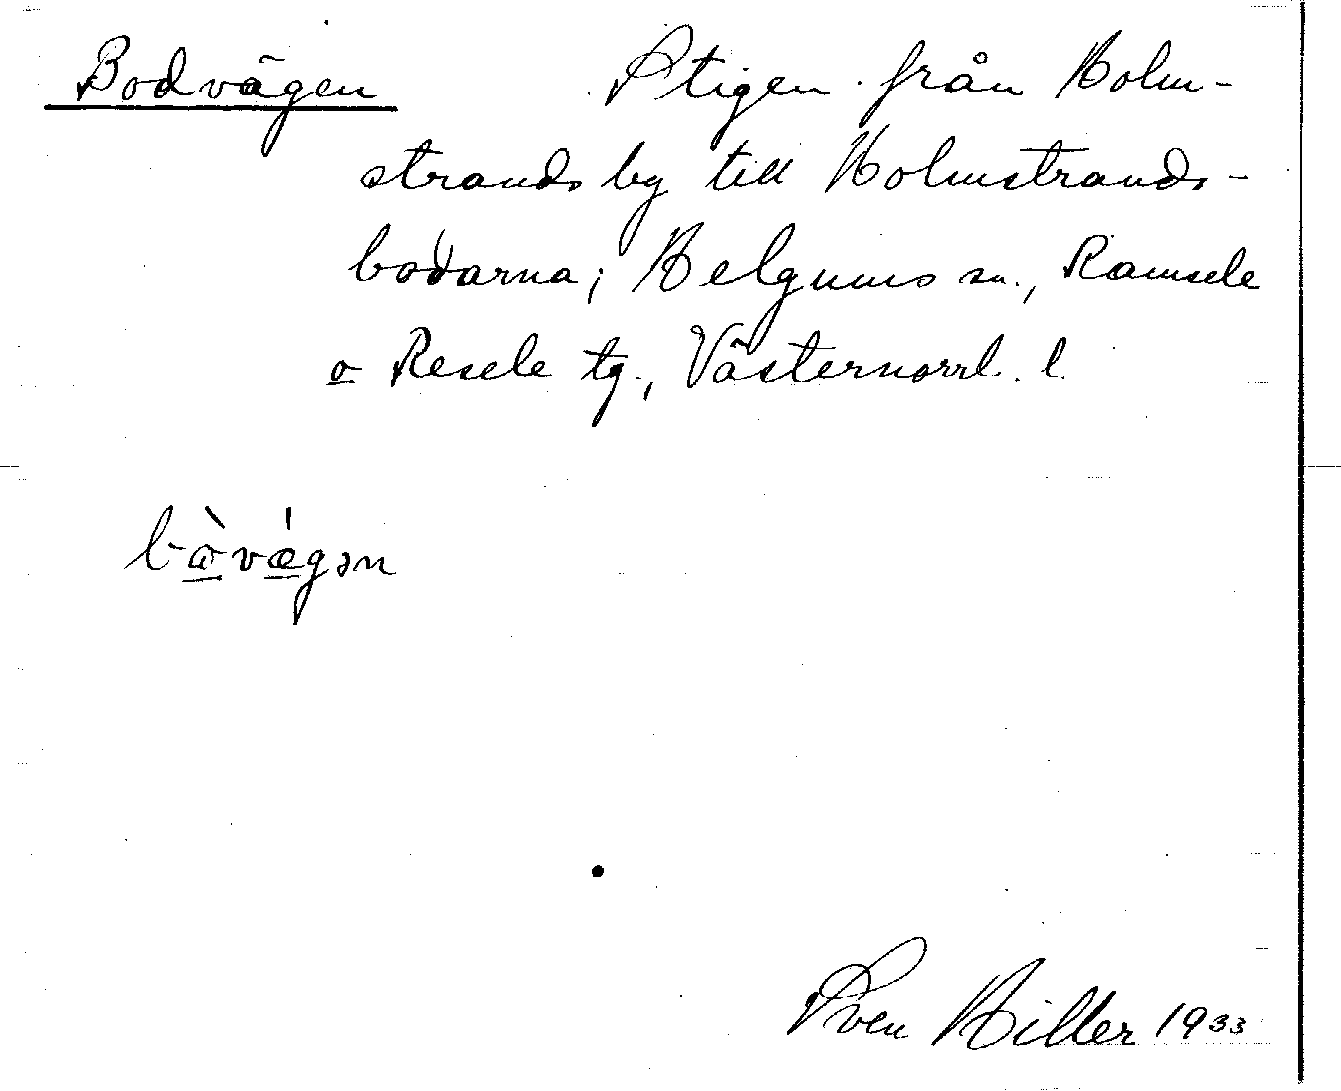 Bodvägen Stigen från Holm-
strands by till Holmstrands-
bodarna; Helgums sn., Ramsele
o Resele tg., Västernorrl. l.
bὼvǽgən
Sven Hiller 1933